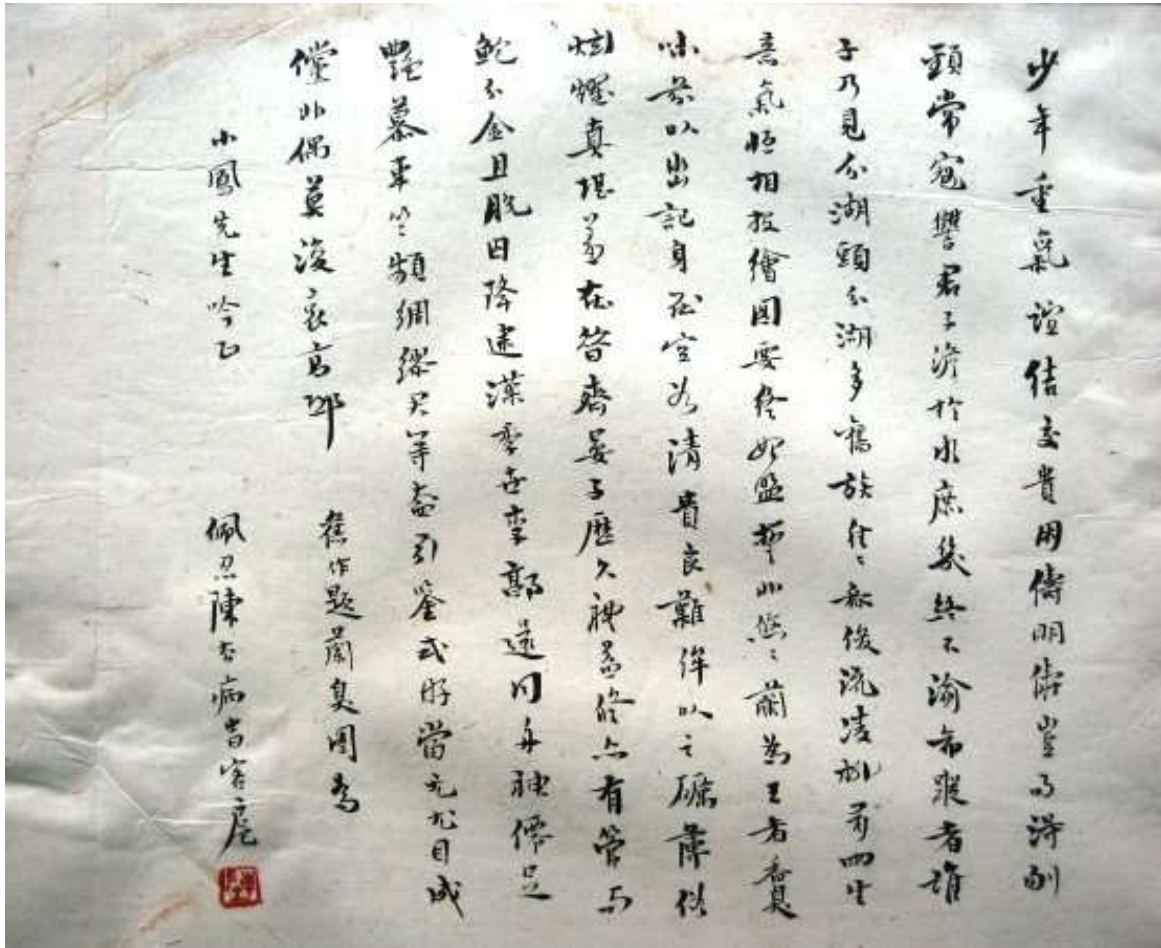 少年重氣誼結交貴用儔明儔豈易得刎
頸常寇讐君子淡於水庶幾終不渝布蹤者誰
子乃見分湖頭分湖多舊族佳公俊流凌別前四生
意氣恆相投繪圖要終始盟誓非悠悠蘭為王者臭
味若以出記身花空谷清貴良難侔以之礪薄俗
炫耀真堪羞在昔齊晏子歷久神益修亦有管与
鮑分金且脫囚降逮漢季世李郭遠同舟神僊足
艷慕車笠頻綢繆君等盍引鑒式好當无尤目成
儻非偶莫浚哀高邱
舊作題蘭臭圖為
小鳳先生吟正
佩忍陳去病書